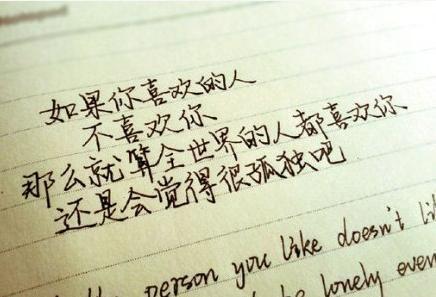 如果你喜欢的人
不喜欢你
那么就算全世界的人都喜欢你
还是会觉得很孤独吧
person you like doesn't
lonely even